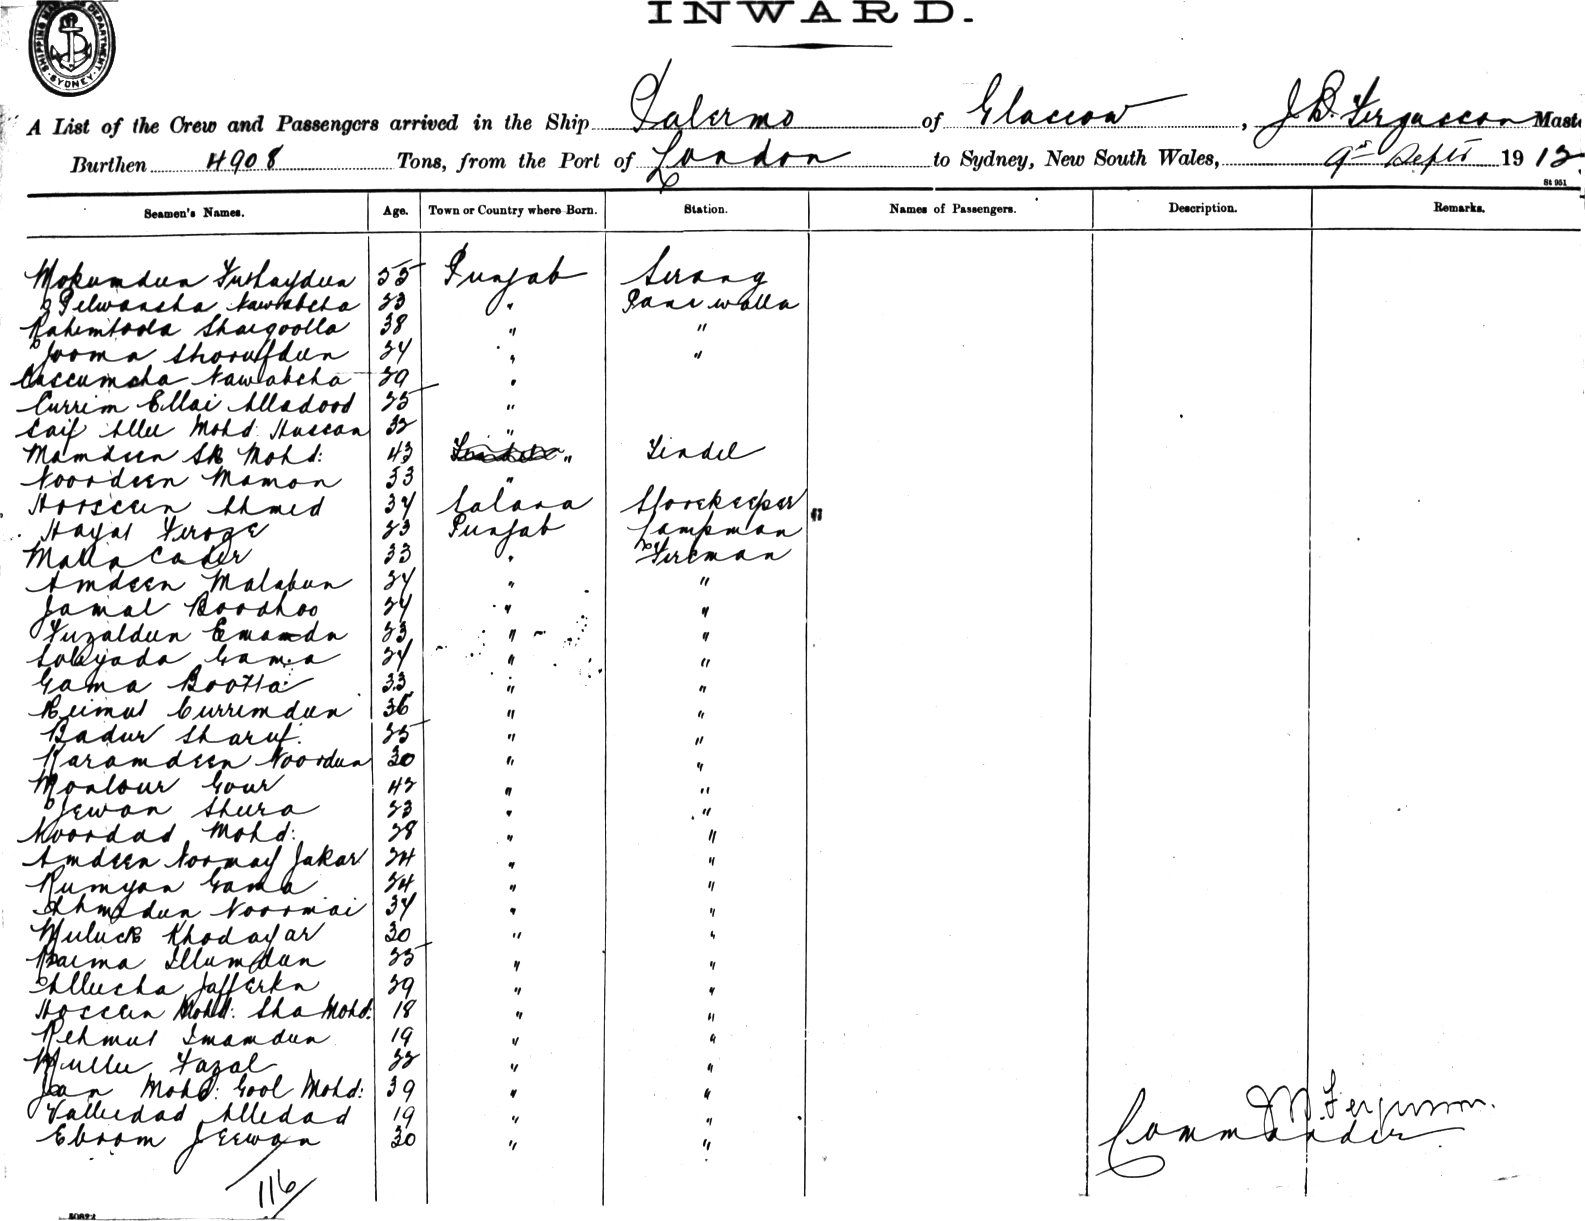 INWARD.
SHIPPING MASTER'S DEPARTMENT SYDNEY
A List of the Crew and Passengers arrived in the Ship Palermo of Glascow, J D. Fergusson Mast
Burthen 4908 Tons, from the Port of London to Sydney, New South Wales, 9th Sept 1912
St 951
Seamen's Names. Age. Town or Country where Born. Station. Names of Passengers. Description. Remarks.
Mokumdun Futhaydun 55 Punjab Serang
Pelwansha Nawabsha 23 " Pani walla
Rahimtoola Shaigoolla 38 " "
Jooma Shoruffdun 24 " "
Casumsha Nawabsha 29 "
Currim Ellai Alladood 25 "
Saif Allee Mohd Hussan 32 "
Mamdeen SK Mohd: 43 " Tindel
Noordeen Mamon 33 "
Hosseen Ahmed 34 Calana Storekeeper
Hayat Feroze 23 Punjab Lampman
Malla Cader 33 " Fireman
Amdeen Malabun 24 " "
Jamal Boodhoo 24 " "
Fuzaldun Emamdn 23 " "
Gama 24 " "
Gama Bootta 33 " "
Reimut Currimdun 36 " "
Badur Sharuf. 25 " "
Karamdeen Noordun 30 " "
Monlour Gour 42 " "
Jewan Shera 23 " "
Noordad Mohd: 28 " "
Amdeen Noormay Jakar 24 " "
Rumyan Gama 24 " "
Ahmedun Nooroomai 34 " "
Muluck Khodayar 30 " "
Karma Illumdun 25 " "
Allucha Jafferkn 29 " "
Hosseen Mohd: Sha Mohd: 18 " "
Rehmut Imamdun 19 " "
Mullu Fazal 22 " "
Jan Mohd: Gool Mohd: 39 " "
Valledad Alledad 19 " "
Ebram Jeewan 30 " "
Ferguson.
Commander
116